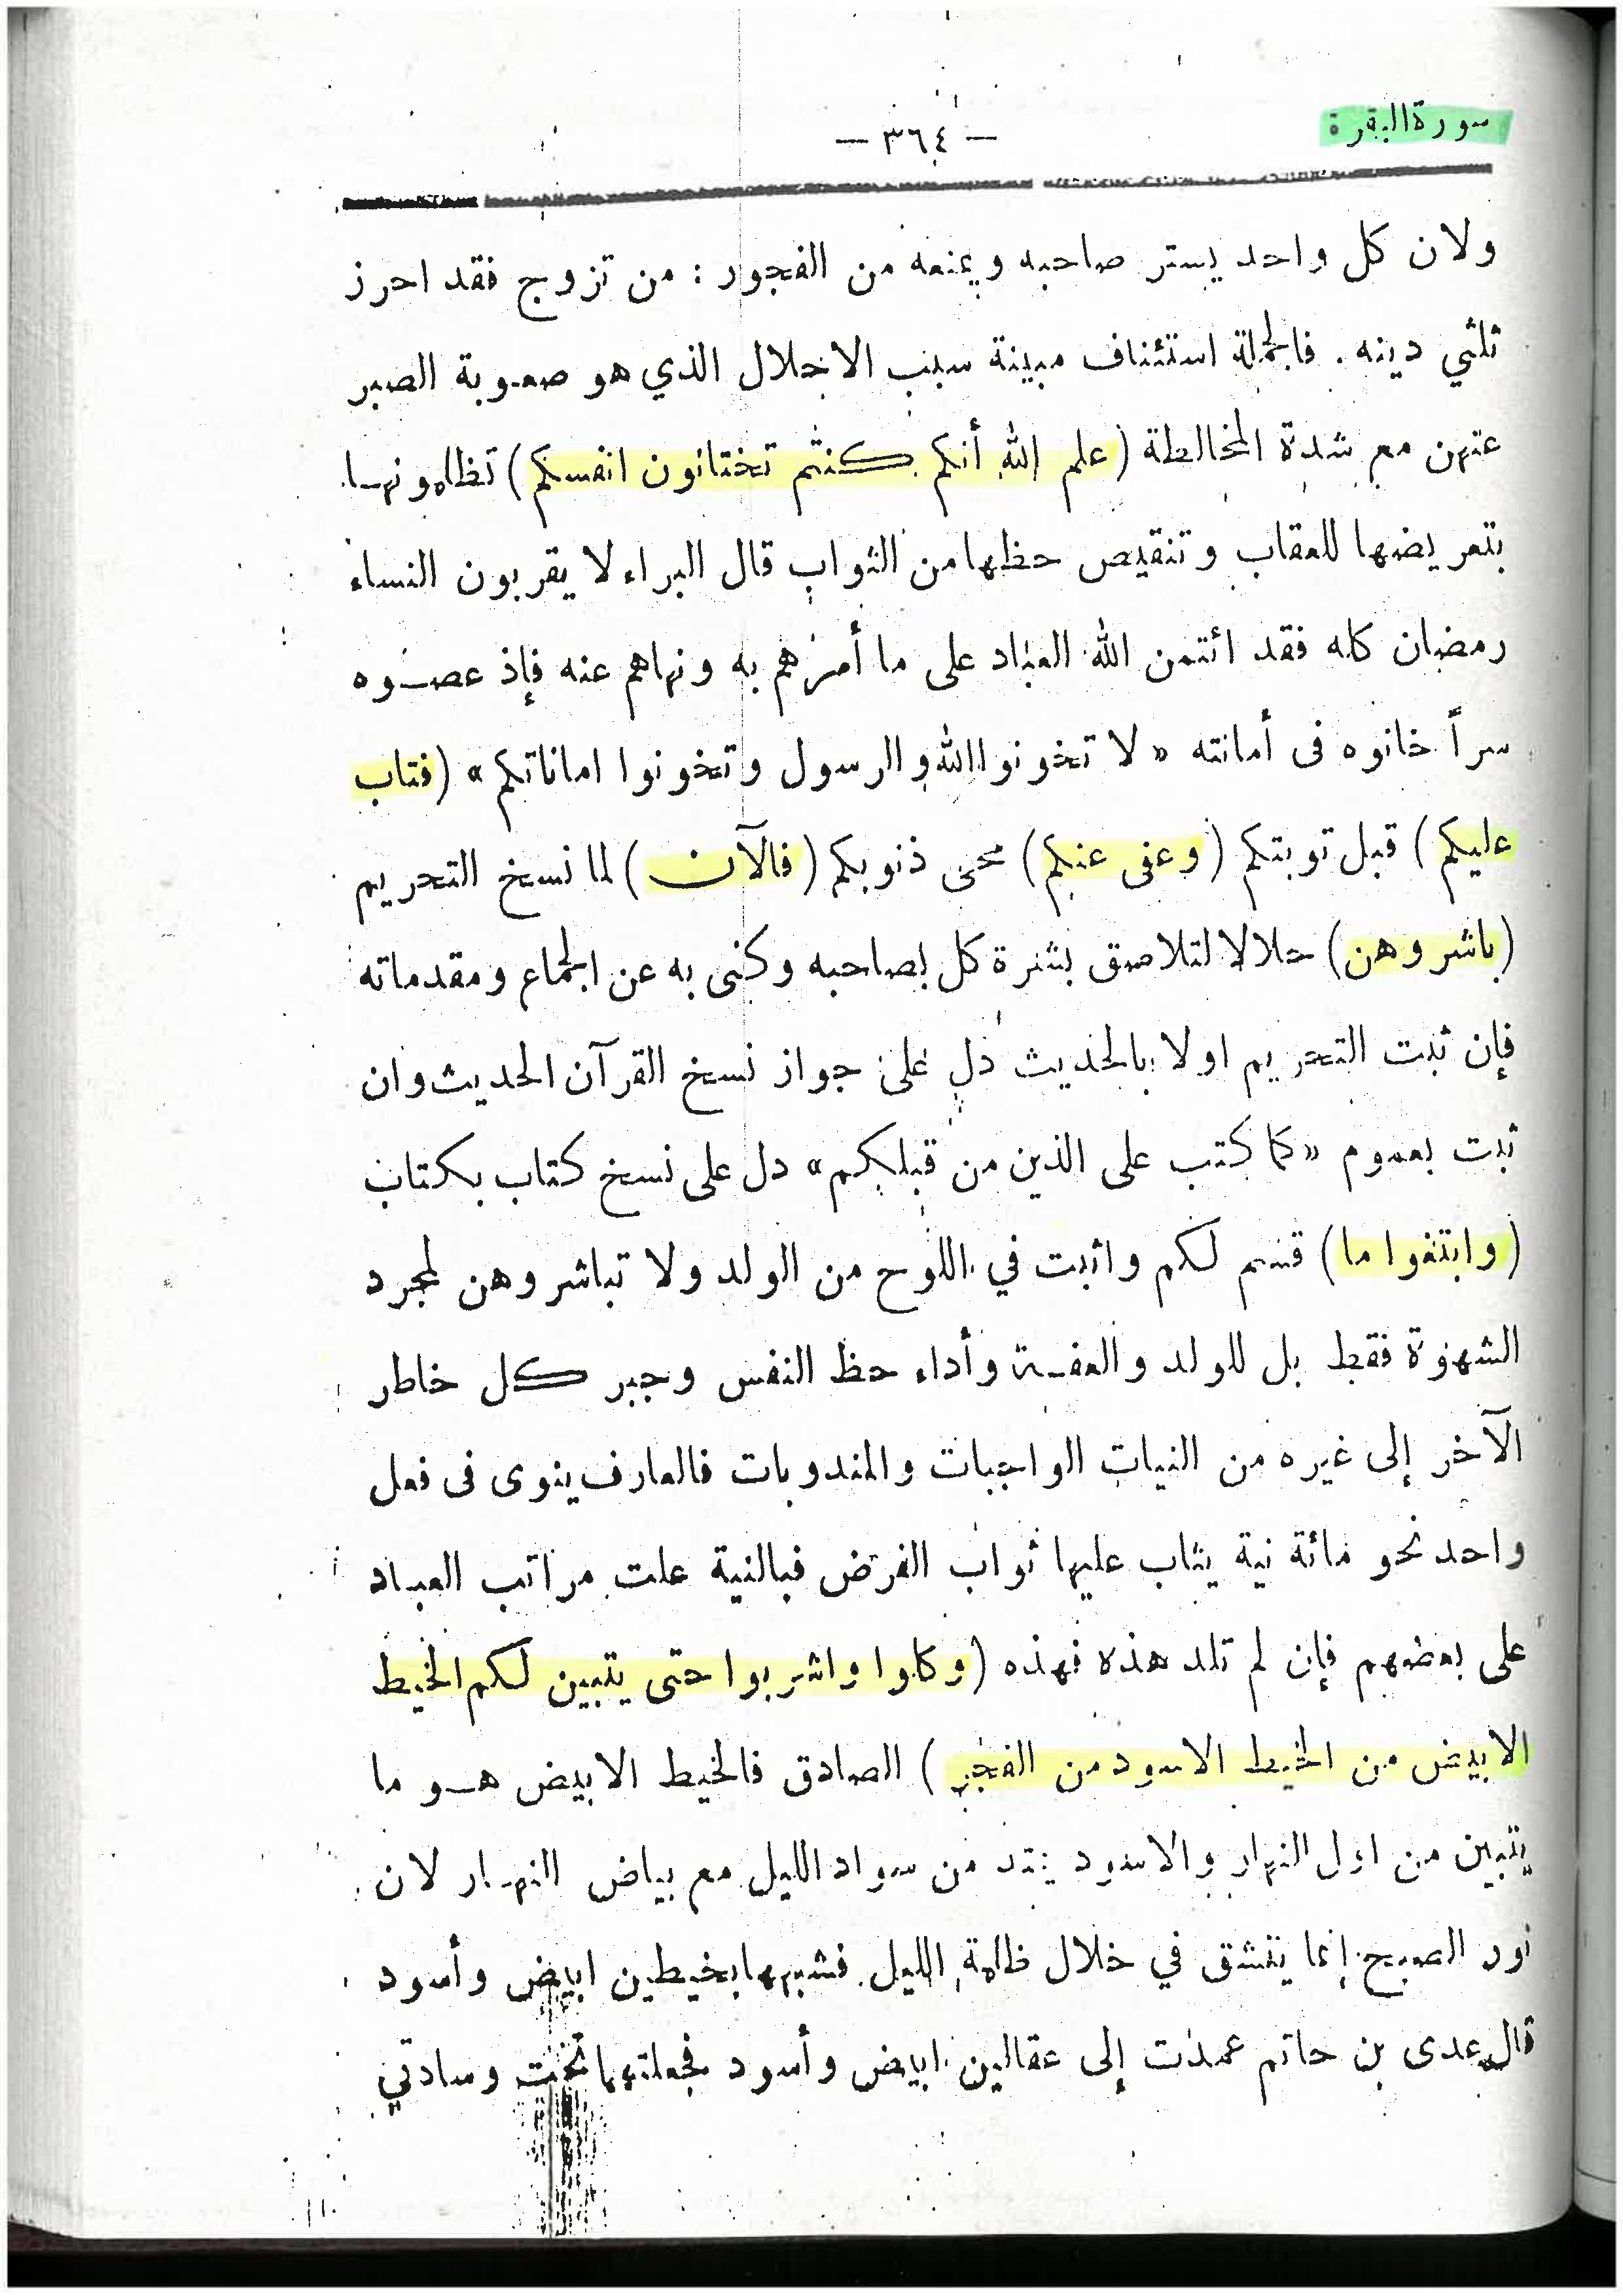 سورة البقرة
— ٣٦٤ —
ولان كل واحد يستر صاحبه ويمنعه من الفجور : من تزوج فقد احرز
ثلثي دينه . فالجملة استئناف مبينة سبب الاحلال الذي هو صعوبة الصبر
عنهن مع شدة المخالطة (علم الله أنكم كنتم تختانون انفسكم) تظلمونها
بتعريضها للعقاب وتنقيص حظها من الثواب قال البراء لا يقربون النساء
رمضان كله فقد ائتمن الله العباد على ما أمرهم به ونهاهم عنه فإذ عصوه
سراً خانوه فى أمانته «لا تخونوا الله والرسول وتخونوا اماناتكم» (فتاب
عليكم) قبل توبتكم (وعفى عنكم) محى ذنوبكم (فالآن) لما نسخ التحريم
(باشروهن) حلالا لتلاصق بشرة كل بصاحبه وكنى به عن الجماع ومقدماته
فإن ثبت التحريم اولا بالحديث دل على جواز نسخ القرآن الحديث وان
ثبت بعموم «كما كتب على الذين من قبلكم» دل على نسخ كتاب بكتاب
(وابتغوا ما) قسم لكم واثبت في اللوح من الولد ولا تباشروهن لمجرد
الشهوة فقط بل للولد والعفة وأداء حظ النفس وجبر كل خاطر
الآخر إلى غيره من النيات الواجبات والمندوبات فالعارف ينوى فى فعل
واحد نحو مائة نية يثاب عليها ثواب الفرض فبالنية علت مراتب العباد
على بعضهم فإن لم تلد هذه فهذه (وكلوا واشربوا حتى يتبين لكم الخيط
الابيض من الخيط الاسود من الفجر) الصادق فالخيط الابيض هو ما
يتبين من اول النهار والاسود يمتد من سواد الليل مع بياض النهار لان
نور الصبح إنما ينشق في خلال ظلمة الليل فشبهها بخيطين ابيض وأسود
قال عدى بن حاتم عمدت إلى عقالين ابيض وأسود فجعلتهما تحت وسادتي